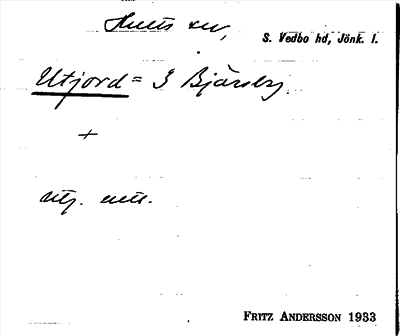 Hults sn,
S. Vedbo hd, Jönk. l.
Utjord = I Bjärsby
+
utj.
FRITZ ANDERSSON 1933